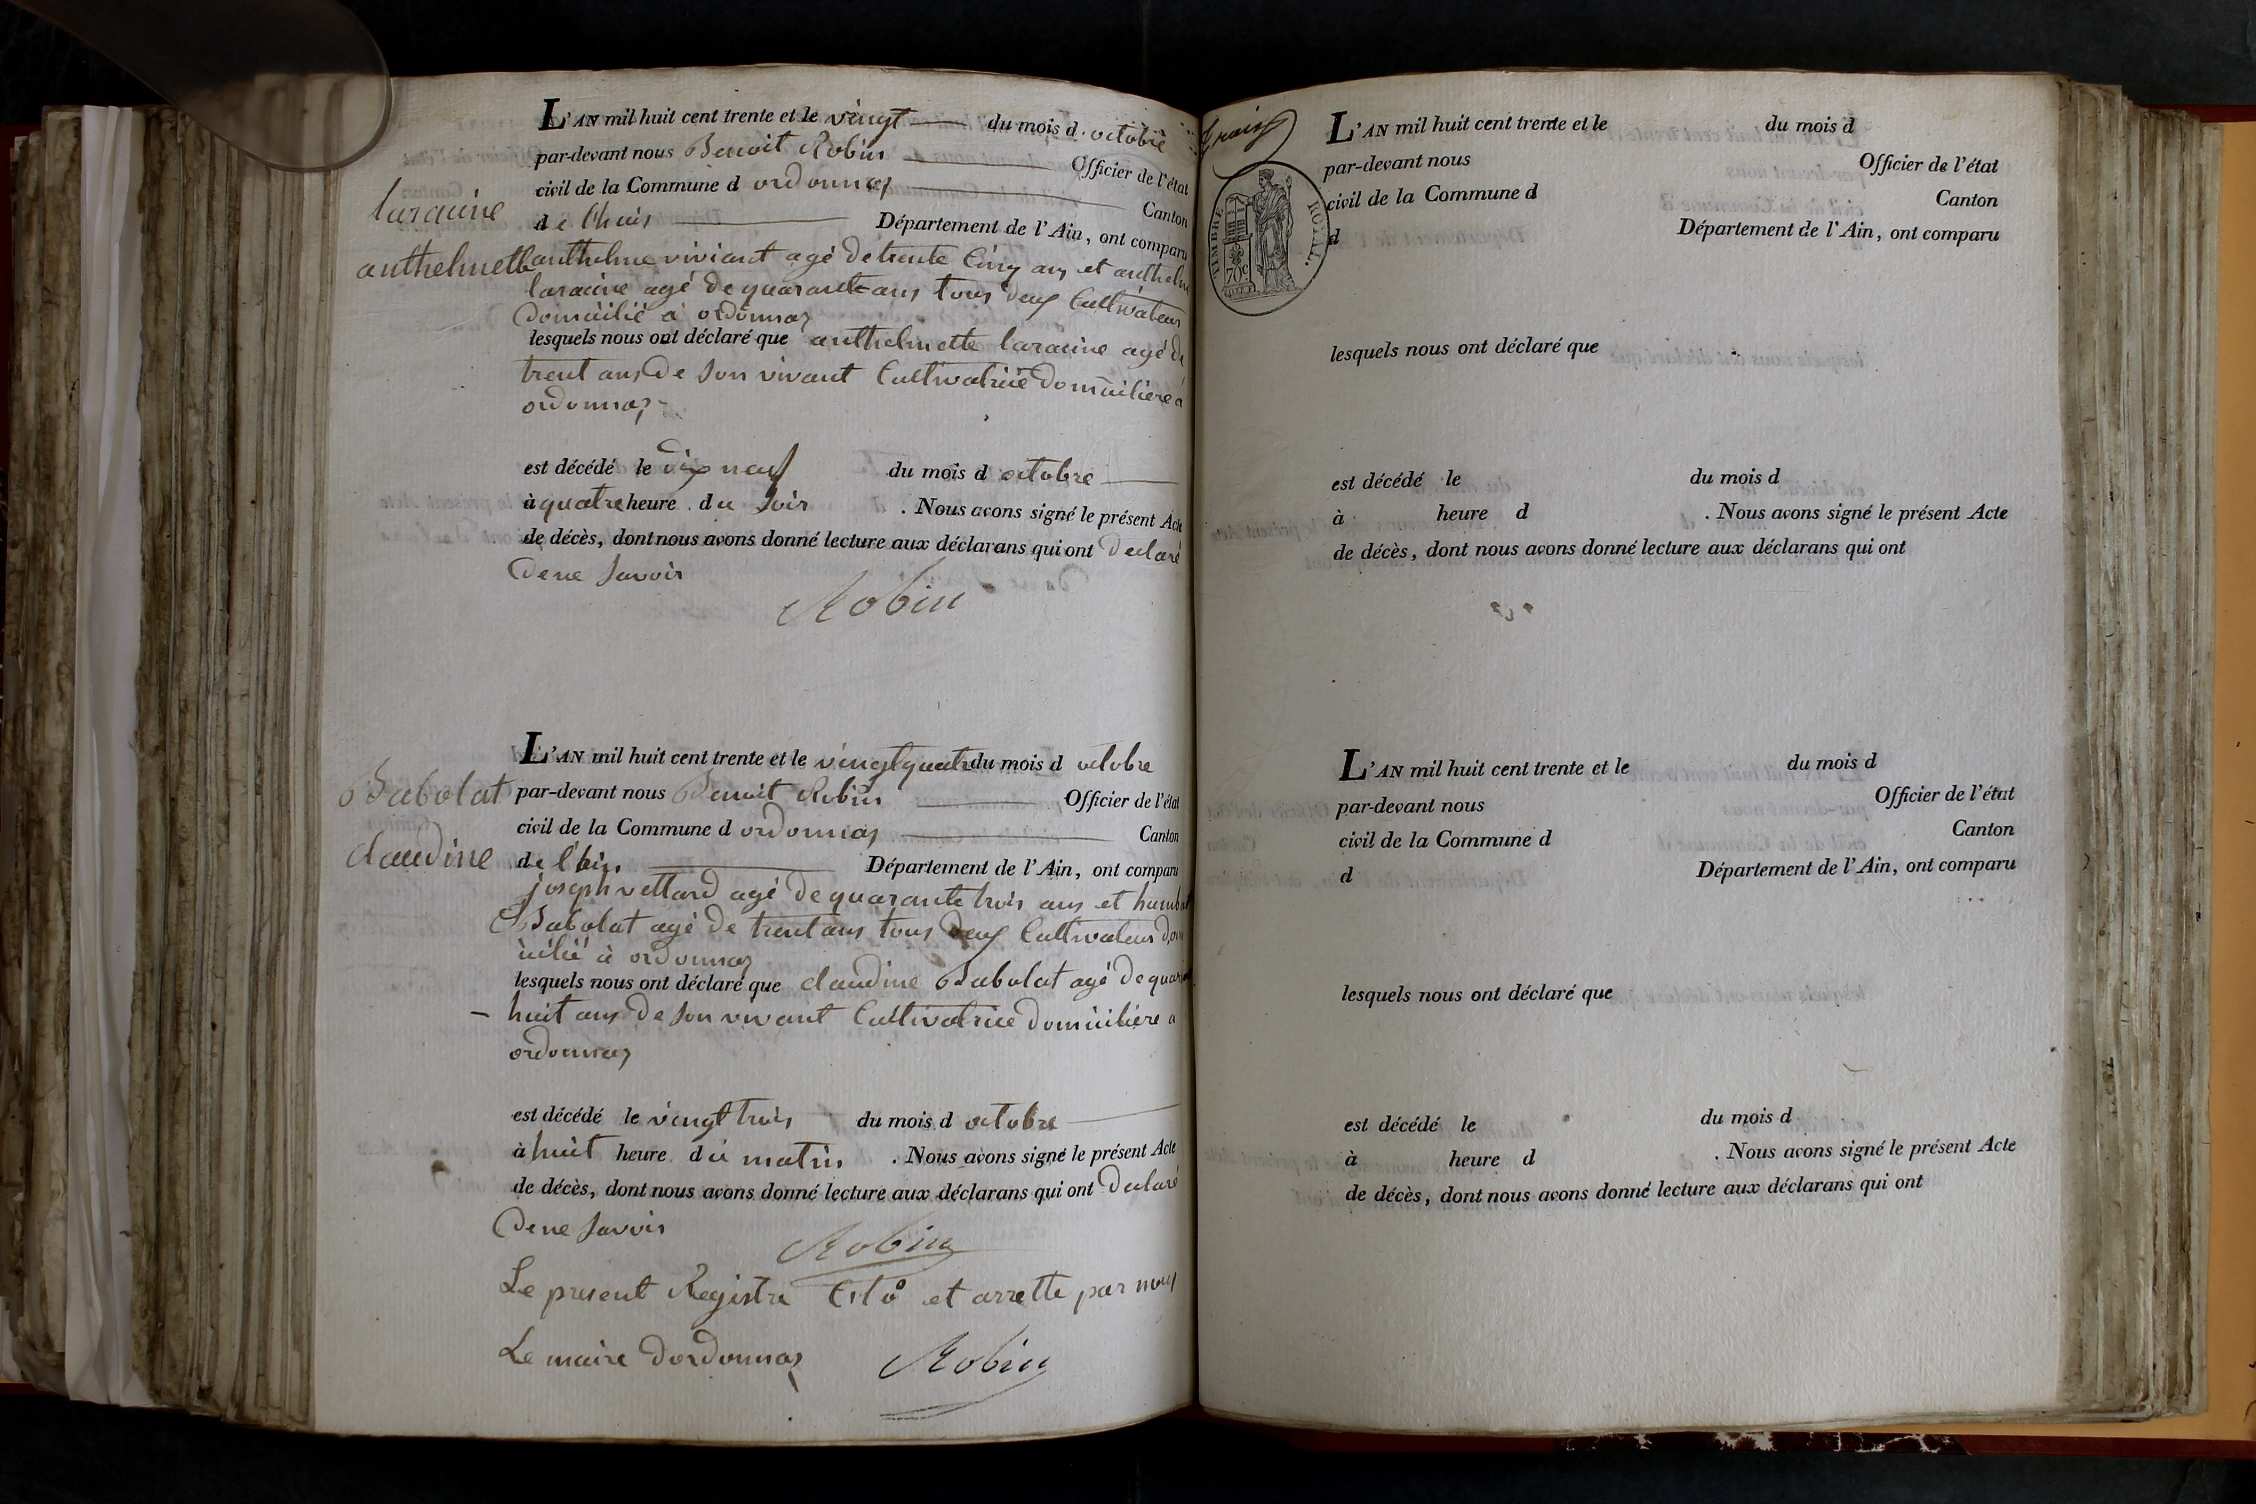 L'AN mil huit cent trente et le vingt du mois d octobre
par-devant nous Benoit Robin Officier de l'état
civil de la Commune d ordonnaz Canton
de lhuis Département de l'Ain, ont comparu
laracine
anthelmette
anthelme viviant agé de trente cinq ans et anthelme
laracine agé de quarante ans tous deux Cultivateur
domicilié a ordonnaz
lesquels nous ont déclaré que anthelmette laracine agé de
trent ans de son vivant Cultivatrice domicilière a
ordonnaz
est décédé le dix neuf du mois d octobre
à quatre heure du soir . Nous avons signé le présent Acte
de décès, dont nous avons donné lecture aux déclarans qui ont declaré
de ne savoir
Robin
L'AN mil huit cent trente et le vingtquatre du mois d octobre
Babolat
claudine
par-devant nous Benoit Robin Officier de l'état
civil de la Commune d ordonnaz Canton
de Département de l'Ain, ont comparu
joseph vettard agé de quarante trois ans et
Babolat agé de trent ans tous deux Cultivateur dom
icilié à ordonnaz
lesquels nous ont déclaré que claudine Babolat agé de
huit ans de son vivant Cultivatrice domicilière a
ordonnaz
est décédé le vingt trois du mois d octobre
à huit heure du matin . Nous avons signé le présent Acte
de décès, dont nous avons donné lecture aux déclarans qui ont declaré
de ne savoir
Robin
Le present Registre Clô et arrette par nous
Le maire dordonnaz Robin
TIMBRE ROYAL.
70c
L'AN mil huit cent trente et le du mois d
par-devant nous Officier de l'état
civil de la Commune d Canton
d Département de l'Ain, ont comparu
lesquels nous ont déclaré que
est décédé le du mois d
à heure d . Nous avons signé le présent Acte
de décès, dont nous avons donné lecture aux déclarans qui ont
L'AN mil huit cent trente et le du mois d
par-devant nous Officier de l'état
civil de la Commune d Canton
d Département de l'Ain, ont comparu
lesquels nous ont déclaré que
est décédé le du mois d
à heure d . Nous avons signé le présent Acte
de décès, dont nous avons donné lecture aux déclarans qui ont